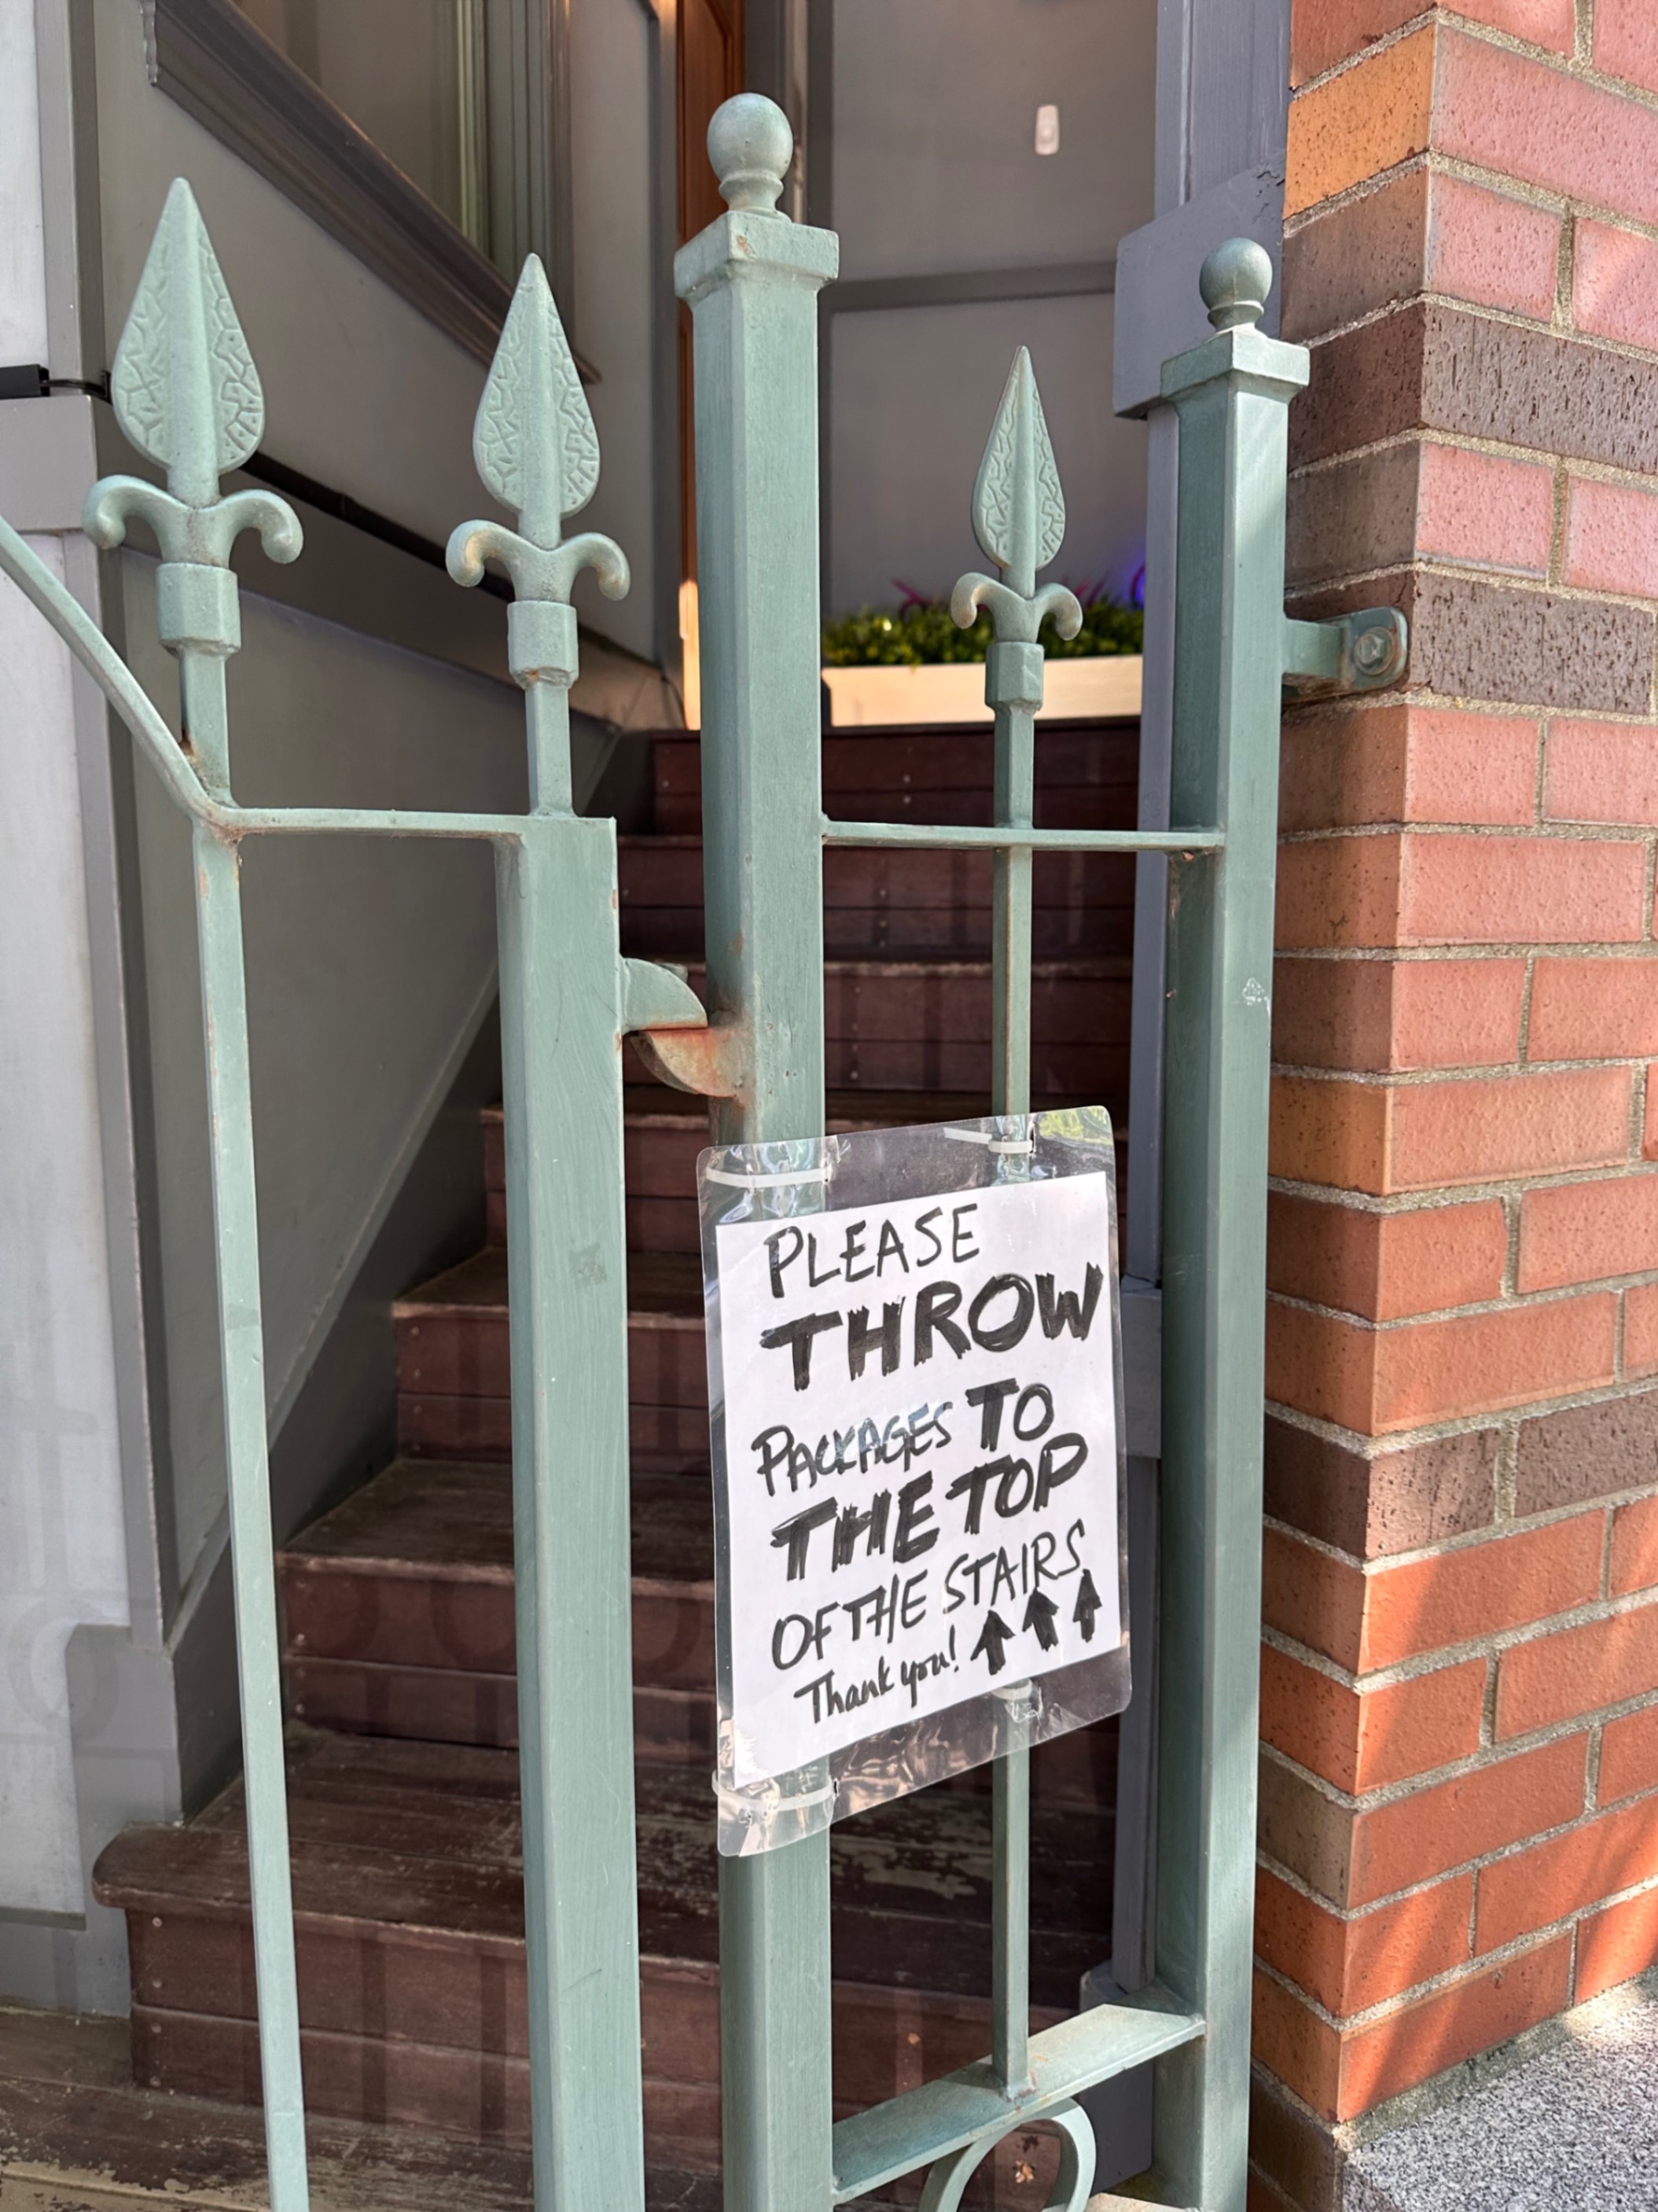 PLEASE
THROW
PACKAGES TO
THE TOP
OF THE STAIRS
Thank you! ↑ ↑ ↑